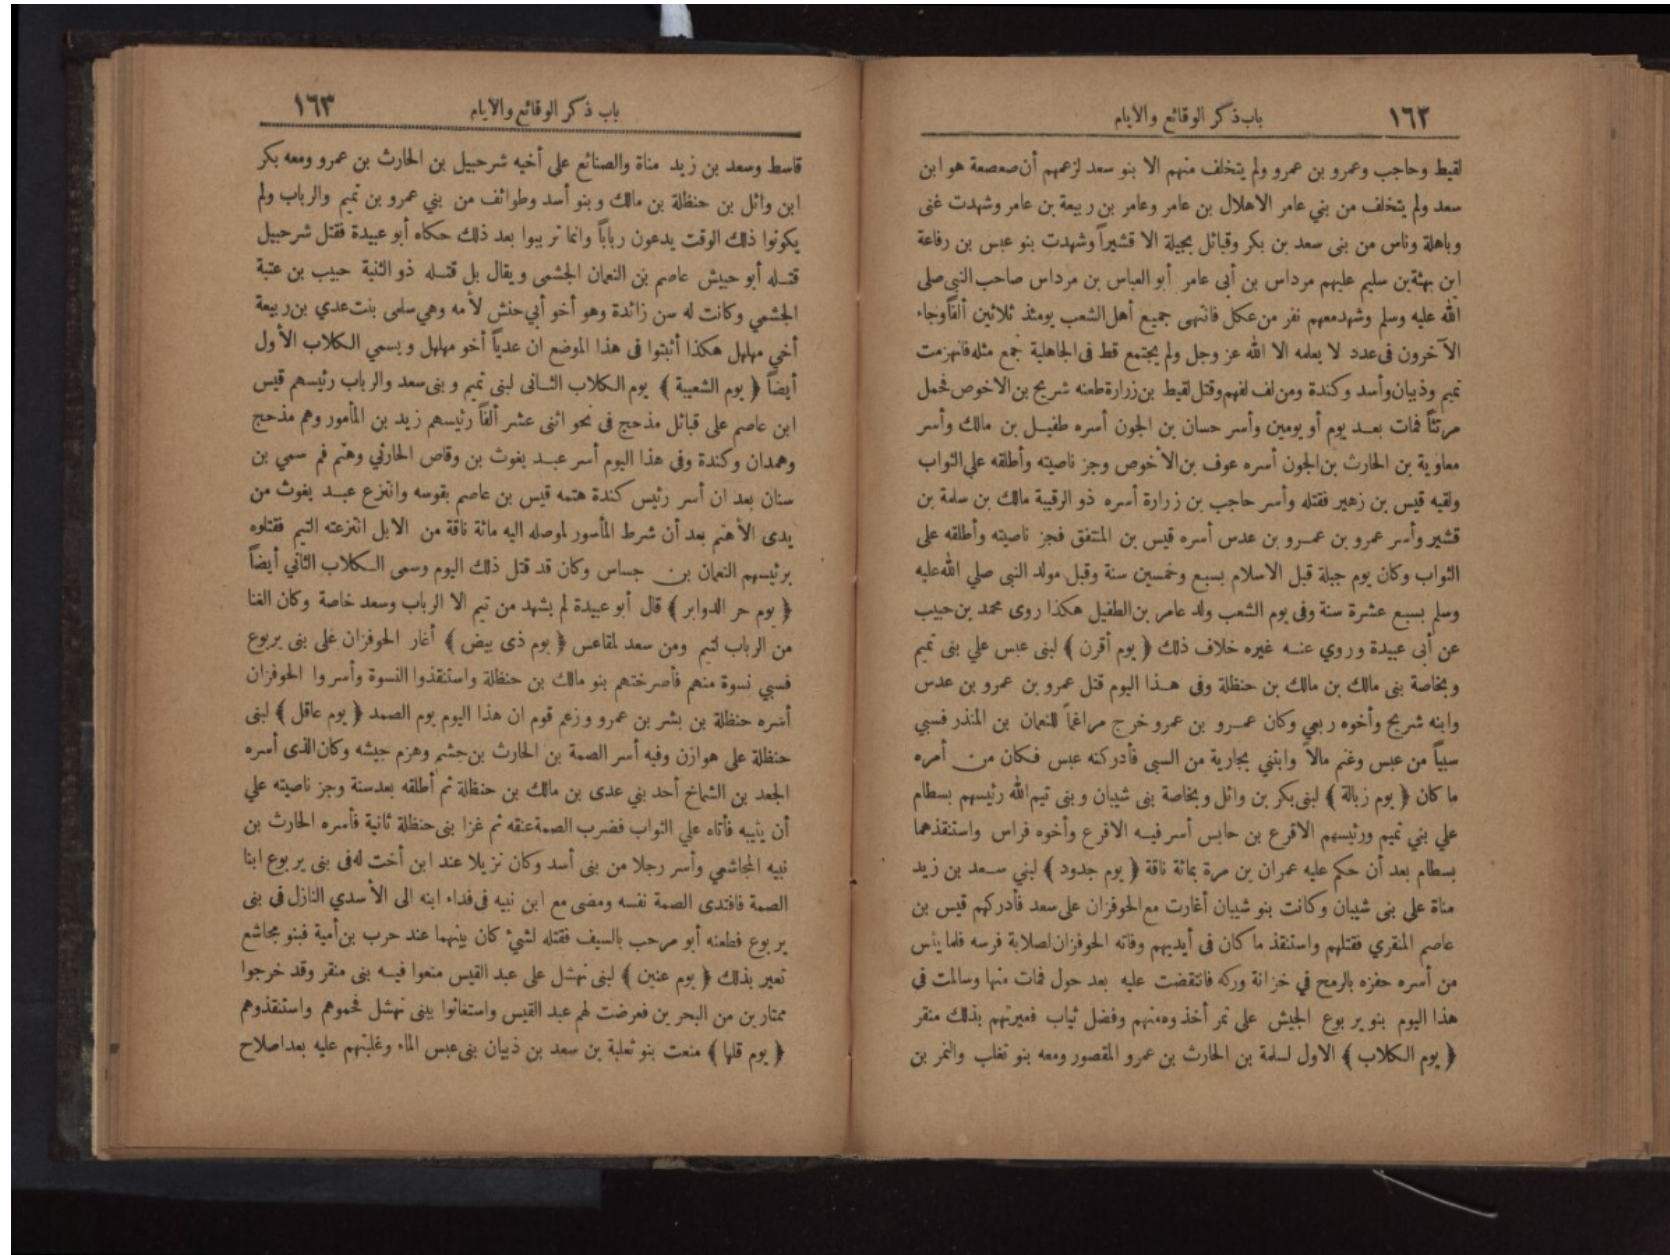 ١٦٣
باب ذكر الوقائع والأيام
لقيط وحاجب وعمرو بن عمرو ولم يتخلف منهم الا بنو سعد لزعمهم أن صعصعة هو ابن
سعد ولم يتخلف من بني عامر الاهلال بن عامر وعامر بن ربيعة بن عامر وشهدت غنى
وباهلة وناس من بنى سعد بن بكر وقبائل بجيلة الا قشيراً وشهدت بنو عبس بن رفاعة
ابن بهثة بن سليم عليهم مرداس بن أبى عامر أبو العباس بن مرداس صاحب النبي صلى
الله عليه وسلم وشهد معهم نفر من عكل فانتهى جميع أهل الشعب يومئذ ثلاثين ألفاً وجاء
الآخرون في عدد لا يعلمه الا الله عز وجل ولم يجتمع قط في الجاهلية جمع مثله فانهزمت
تميم وذبيان وأسد وكندة ومن لف لفهم وقتل لقيط بن زرارة طعنه شريح بن الاخوص فحمل
مرتثاً فمات بعد يوم أو يومين وأسر حسان بن الجون أسره طفيل بن مالك وأسر
معاوية بن الحارث بن الجون أسره عوف بن الأخوص وجز ناصيته وأطلقه على الثواب
ولقيه قيس بن زهير فقتله وأسر حاجب بن زرارة أسره ذو الرقيبة مالك بن سلمة بن
قشير وأسر عمرو بن عمرو بن عدس أسره قيس بن المنتفق فجز ناصيته وأطلقه على
الثواب وكان يوم جبلة قبل الاسلام بسبع وخمسين سنة وقبل مولد النبى صلي الله عليه
وسلم بسبع عشرة سنة وفى يوم الشعب ولد عامر بن الطفيل هكذا روى محمد بن حبيب
عن أبى عبيدة وروي عنه غيره خلاف ذلك ﴿ يوم أقرن ﴾ لبنى عبس علي بنى تميم
وبخاصة بنى مالك بن مالك بن حنظلة وفى هذا اليوم قتل عمرو بن عمرو بن عدس
وابنه شريح وأخوه ربعي وكان عمرو بن عمرو خرج مراغماً للنعمان بن المنذر فسبي
سبياً من عبس وغنم مالاً وابتني بجارية من السبى فأدركته عبس فكان من أمره
ما كان ﴿ يوم زبالة ﴾ لبنى بكر بن وائل وبخاصة بنى شيبان وبنى تيم الله رئيسهم بسطام
علي بني تميم ورئيسهم الاقرع بن حابس أسر فيه الاقرع وأخوه فراس واستنقذهما
بسطام بعد أن حكم عليه عمران بن مرة بمائة ناقة ﴿ يوم جدود ﴾ لبني سعد بن زيد
مناة على بنى شيبان وكانت بنو شيبان أغارت مع الحوفزان على سعد فأدركهم قيس بن
عاصم المنقري فقتلهم واستنقذ ما كان فى أيديهم وفاته الحوفزان لصلابة فرسه فلما يئس
من أسره حفزه بالرمح في خزانة وركه فانتقضت عليه بعد حول فمات منها وسالمت في
هذا اليوم بنو يربوع الجيش على تمر أخذوه منهم وفضل ثياب فعيرتهم بذلك منقر
﴿ يوم الكلاب ﴾ الاول لسلمة بن الحارث بن عمرو المقصور ومعه بنو تغلب والنمر بن
باب ذكر الوقائع والأيام
١٦٣
قاسط وسعد بن زيد مناة والصنائع على أخيه شرحبيل بن الحارث بن عمرو ومعه بكر
ابن وائل بن حنظلة بن مالك وبنو أسد وطوائف من بني عمرو بن تميم والرباب ولم
يكونوا ذلك الوقت يدعون رباباً وانما تربيوا بعد ذلك حكاه أبو عبيدة فقتل شرحبيل
قتله أبو حبيش عاصم بن النعمان الجشمى ويقال بل قتله ذو الثنية حبيب بن عتبة
الجشمي وكانت له سن زائدة وهو أخو أبي حنش لأمه وهي سلمى بنت عدي بن ربيعة
أخي مهلهل هكذا أثبتوا فى هذا الموضع ان عدياً أخو مهلهل ويسمي الكلاب الأول
أيضاً ﴿ يوم الشعيبة ﴾ يوم الكلاب الثانى لبنى تميم وبنى سعد والرباب رئيسهم قيس
ابن عاصم على قبائل مذحج فى نحو اثنى عشر ألفاً رئيسهم زيد بن المأمور وهم مذحج
وهمدان وكندة وفى هذا اليوم أسر عبد يغوث بن وقاص الحارثي وهتم فم سمي بن
سنان بعد ان أسر رئيس كندة هتمه قيس بن عاصم بقوسه وانتزع عبد يغوث من
يدى الأهتم بعد أن شرط المأسور لموصله اليه مائة ناقة من الابل انتزعته التيم فقتلوه
برئيسهم النعمان بن جساس وكان قد قتل ذلك اليوم وسمى الكلاب الثاني أيضاً
﴿ يوم حر الدوابر ﴾ قال أبو عبيدة لم يشهد من تيم الا الرباب وسعد خاصة وكان الغنا
من الرباب لتيم ومن سعد لمقاعس ﴿ يوم ذى بيض ﴾ أغار الحوفزان على بنى يربوع
فسبي نسوة منهم فأصرختهم بنو مالك بن حنظلة واستنقذوا النسوة وأسروا الحوفزان
أسره حنظلة بن بشر بن عمرو وزعم قوم ان هذا اليوم يوم الصمد ﴿ يوم عاقل ﴾ لبنى
حنظلة على هوازن وفيه أسر الصمة بن الحارث بن جشم وهزم جيشه وكان الذى أسره
الجعد بن الشماخ أحد بني عدى بن مالك بن حنظلة ثم أطلقه بعد سنة وجز ناصيته علي
أن يثيبه فأتاه علي الثواب فضرب الصمة عنقه ثم غزا بنى حنظلة ثانية فأسره الحارث بن
نبيه المجاشعي وأسر رجلا من بنى أسد وكان نزيلا عند ابن أخت له فى بنى يربوع ابنا
الصمة فافتدى الصمة نفسه ومضى مع ابن نبيه فى فداء ابنه الى الأسدي النازل فى بنى
يربوع فطعنه أبو مرحب بالسيف فقتله لشئ كان بينهما عند حرب بن أمية فبنو مجاشع
تعير بذلك ﴿ يوم عنين ﴾ لبنى نهشل على عبد القيس منعوا فيه بنى منقر وقد خرجوا
ممتارين من البحرين فعرضت لهم عبد القيس واستغاثوا ببنى نهشل فحموهم واستنقذوهم
﴿ يوم قلها ﴾ منعت بنو ثعلبة بن سعد بن ذبيان بنى عبس الماء وغلبتهم عليه بعد اصلاح